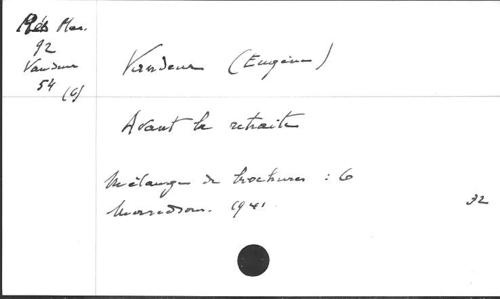 Rés Mor.
92
Vandeur
54
(6)
Vandeur (Eugène)
Avant la retraite
Mélanges de brochures : 6
Maredsous. 1941
32